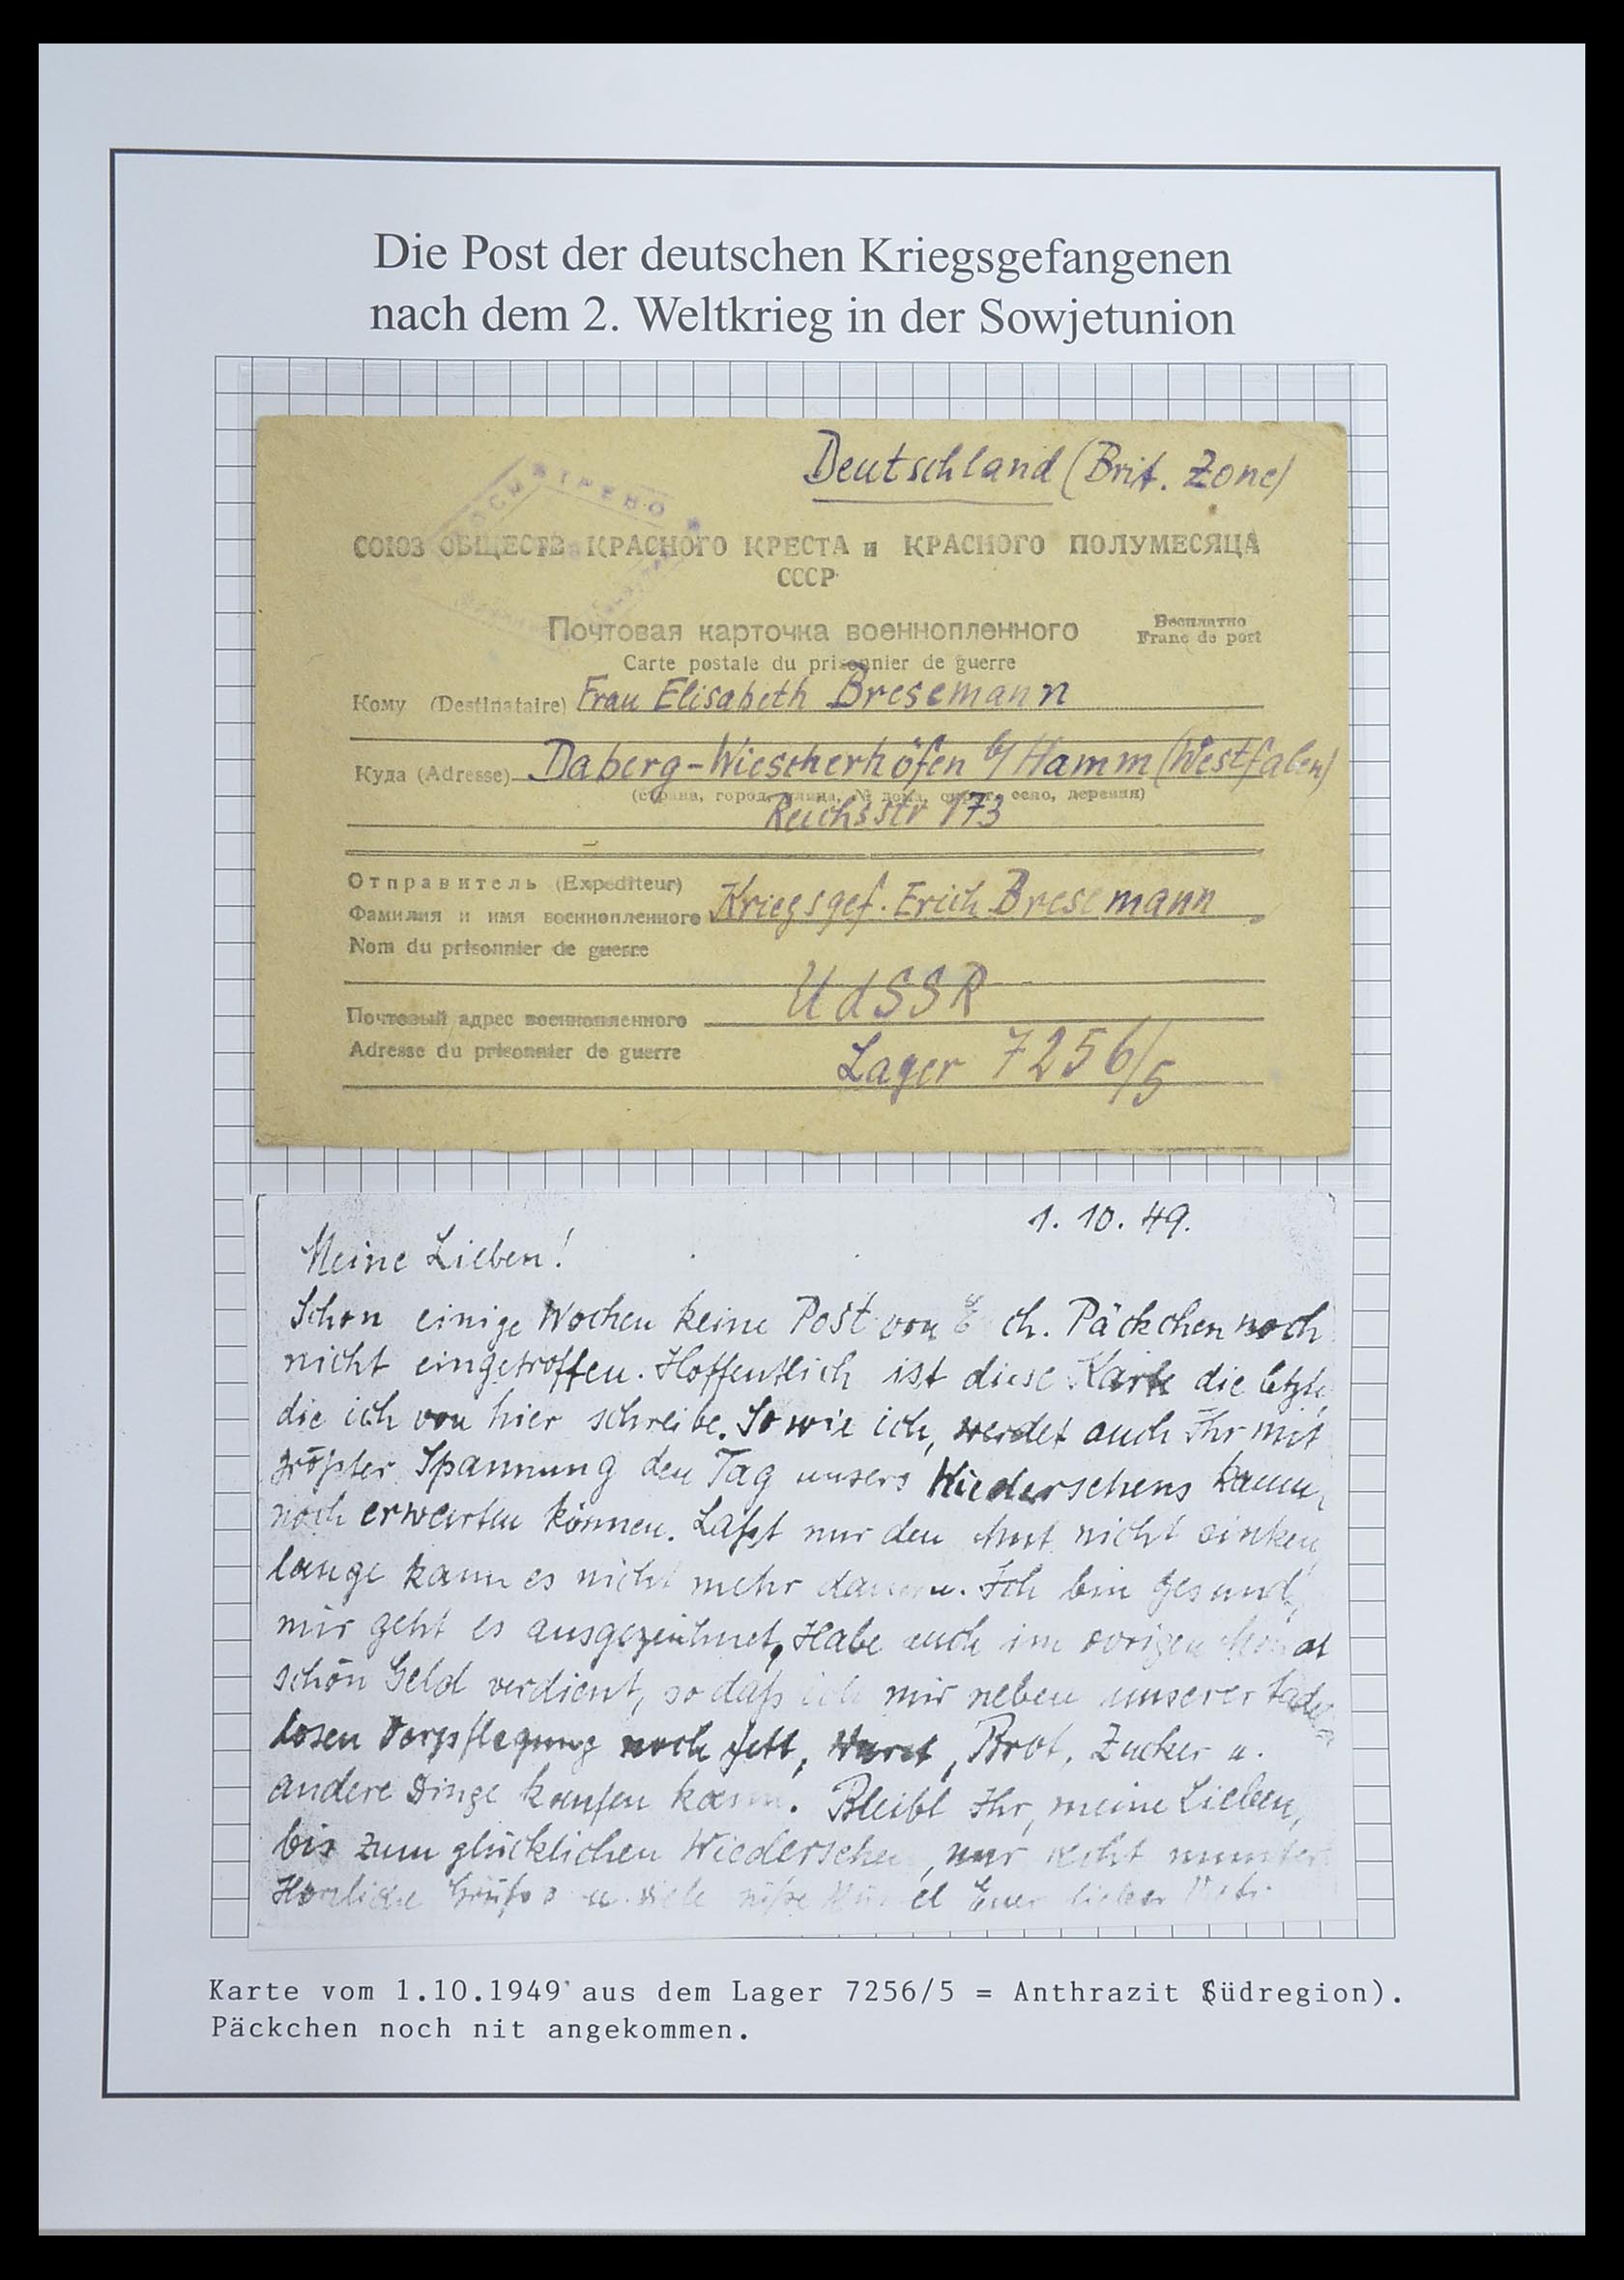 Die Post der deutschen Kriegsgefangenen
nach dem 2. Weltkrieg in der Sowjetunion
Deutschland (Brit. Zone)
СОЮЗ ОБЩЕСТВ КРАСНОГО КРЕСТА и КРАСНОГО ПОЛУМЕСЯЦА
СССР
Почтовая карточка военнопленного
Бесплатно
Franc de port
Carte postale du prisonnier de guerre
Кому (Destinataire) Frau Elisabeth Bresemann
Куда (Adresse) Daberg-Wiescherhöfen b/ Hamm (Westfalen)
(страна, город, улица, № дома, округ, село, деревня)
Reichsstr 173
Отправитель (Expediteur)
Фамилия и имя военнопленного Kriegsgef. Erich Bresemann
Nom du prisonnier de guerre
UdSSR
Почтовый адрес военнопленного
Adresse du prisonnier de guerre
Lager 7256/5
1. 10. 49.
Meine Lieben!
Schon einige Wochen keine Post von E ch. Päckchen noch
nicht eingetroffen. Hoffentlich ist diese Karte die letzte,
die ich von hier schreibe. So wie ich, werdet auch Ihr mit
größter Spannung den Tag unsers Wiedersehens kaum
noch erwarten können. Laßt nur den Mut nicht sinken,
lange kann es nicht mehr dauern. Ich bin gesund,
mir geht es ausgezeichnet, Habe auch im vorigen Monat
schön Geld verdient, so daß ich mir neben unserer tadel-
losen Verpflegung noch Fett, Wurst, Brot, Zucker u.
andere Dinge kaufen kann. Bleibt Ihr, meine Lieben,
bis zum glücklichen Wiedersehen, nur recht munter
Herzliche Grüße u. viele süße Euer lieber Vati
Karte vom 1.10.1949 aus dem Lager 7256/5 = Anthrazit (Südregion).
Päckchen noch nit angekommen.